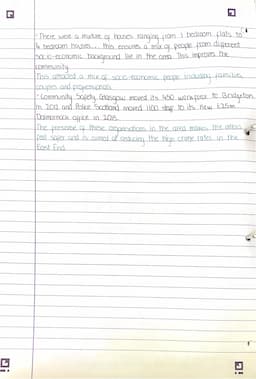 · There were a mixture of houses ranging from 1 bedroom flats to
4 bedroom houses... this ensures a mix of people from different
socio-economic background live in the area. This improves the
community
This attracted a mix of socio-economic people including families,
couples and professionals.
· Community Safety Glasgow moved its 450 workforce to Bridgeton
in 2012 and Police Scotland moved 1100 staff to its new £25m
Dalmarnock office in 2015.
The presence of these organisations in the area makes the area
feel safer and is aimed at reducing the high crime rates in the
East End.